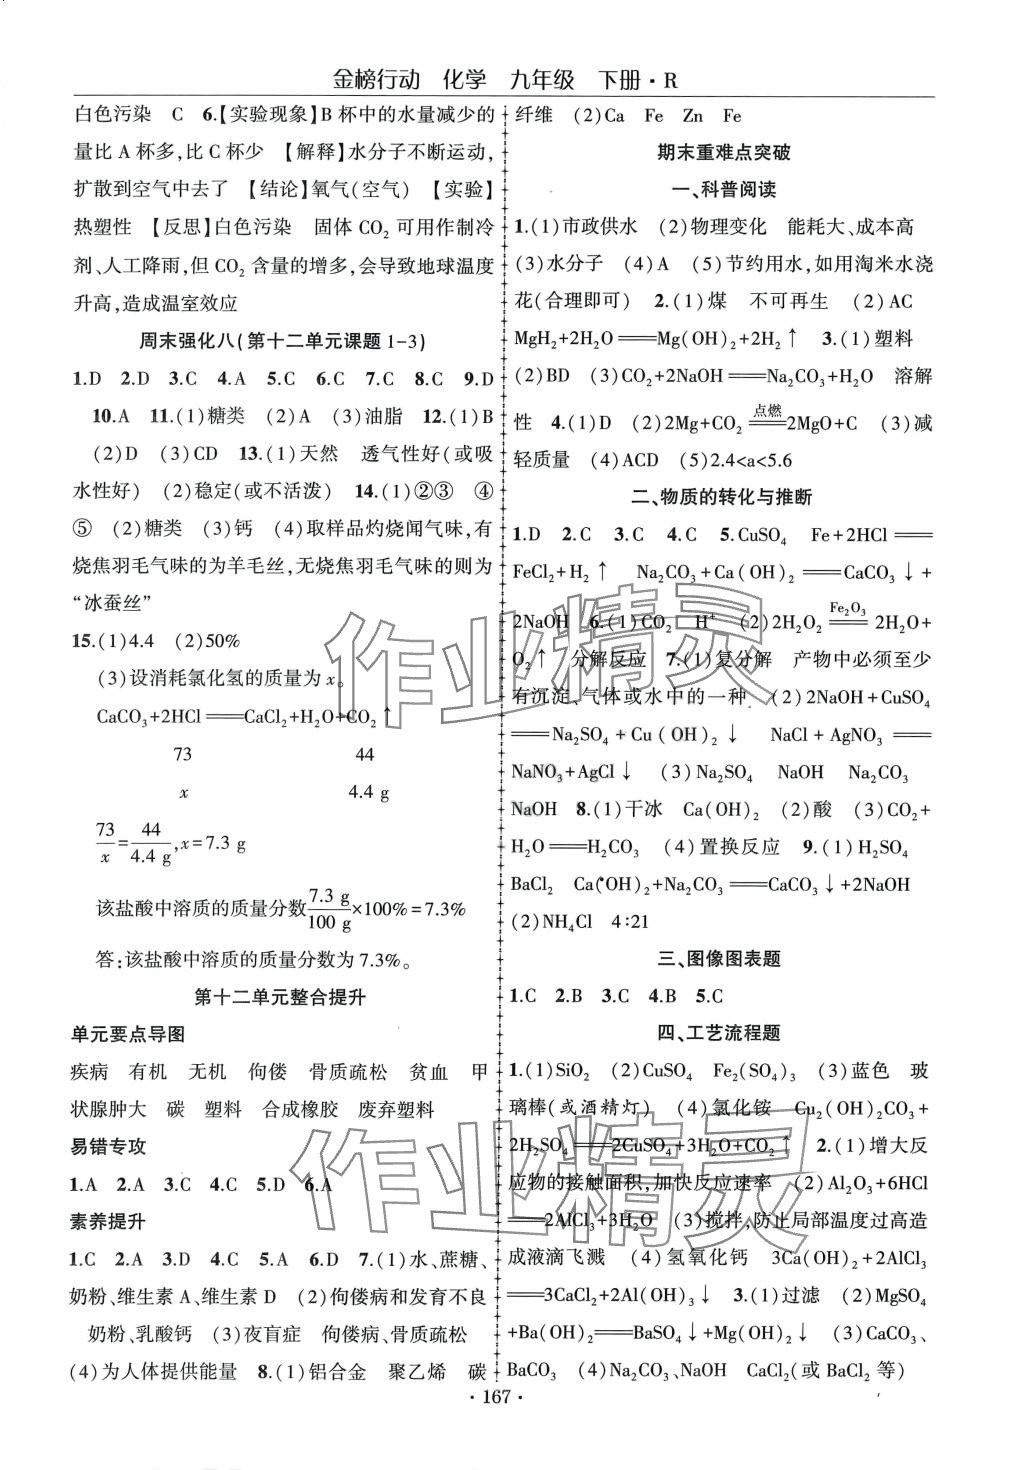 金榜行动 化学 九年级 下册·R
白色污染 C 6.【实验现象】B 杯中的水量减少的
量比 A 杯多,比 C 杯少 【解释】水分子不断运动,
扩散到空气中去了 【结论】氧气(空气) 【实验】
热塑性 【反思】白色污染 固体 CO₂ 可用作制冷
剂、人工降雨,但 CO₂ 含量的增多,会导致地球温度
升高,造成温室效应
周末强化八(第十二单元课题 1-3)
1.D 2.D 3.C 4.A 5.C 6.C 7.C 8.C 9.D
10.A 11.(1)糖类 (2)A (3)油脂 12.(1)B
(2)D (3)CD 13.(1)天然 透气性好(或吸
水性好) (2)稳定(或不活泼) 14.(1)②③ ④
⑤ (2)糖类 (3)钙 (4)取样品灼烧闻气味,有
烧焦羽毛气味的为羊毛丝,无烧焦羽毛气味的则为
“冰蚕丝”
15.(1)4.4 (2)50%
(3)设消耗氯化氢的质量为 x。
CaCO₃+2HCl══CaCl₂+H₂O+CO₂↑
73 44
x 4.4 g
73/x=44/4.4 g,x=7.3 g
该盐酸中溶质的质量分数7.3 g/100 g×100%=7.3%
答:该盐酸中溶质的质量分数为 7.3%。
第十二单元整合提升
单元要点导图
疾病 有机 无机 佝偻 骨质疏松 贫血 甲
状腺肿大 碳 塑料 合成橡胶 废弃塑料
易错专攻
1.A 2.A 3.C 4.C 5.D 6.A
素养提升
1.C 2.A 3.D 4.C 5.A 6.D 7.(1)水、蔗糖、
奶粉、维生素 A、维生素 D (2)佝偻病和发育不良
奶粉、乳酸钙 (3)夜盲症 佝偻病、骨质疏松
(4)为人体提供能量 8.(1)铝合金 聚乙烯 碳
纤维 (2)Ca Fe Zn Fe
期末重难点突破
一、科普阅读
1.(1)市政供水 (2)物理变化 能耗大、成本高
(3)水分子 (4)A (5)节约用水,如用淘米水浇
花(合理即可) 2.(1)煤 不可再生 (2)AC
MgH₂+2H₂O══Mg(OH)₂+2H₂↑ 3.(1)塑料
(2)BD (3)CO₂+2NaOH══Na₂CO₃+H₂O 溶解
性 4.(1)D (2)2Mg+CO₂点燃══2MgO+C (3)减
轻质量 (4)ACD (5)2.4<a<5.6
二、物质的转化与推断
1.D 2.C 3.C 4.C 5.CuSO₄ Fe+2HCl══
FeCl₂+H₂↑ Na₂CO₃+Ca(OH)₂══CaCO₃↓+
2NaOH 6.(1)CO₂ H⁺ (2)2H₂O₂Fe₂O₃══2H₂O+
O₂↑ 分解反应 7.(1)复分解 产物中必须至少
有沉淀、气体或水中的一种 (2)2NaOH+CuSO₄
══Na₂SO₄+Cu(OH)₂↓ NaCl+AgNO₃══
NaNO₃+AgCl↓ (3)Na₂SO₄ NaOH Na₂CO₃
NaOH 8.(1)干冰 Ca(OH)₂ (2)酸 (3)CO₂+
H₂O══H₂CO₃ (4)置换反应 9.(1)H₂SO₄
BaCl₂ Ca(OH)₂+Na₂CO₃══CaCO₃↓+2NaOH
(2)NH₄Cl 4:21
三、图像图表题
1.C 2.B 3.C 4.B 5.C
四、工艺流程题
1.(1)SiO₂ (2)CuSO₄ Fe₂(SO₄)₃ (3)蓝色 玻
璃棒(或酒精灯) (4)氯化铵 Cu₂(OH)₂CO₃+
2H₂SO₄══2CuSO₄+3H₂O+CO₂↑ 2.(1)增大反
应物的接触面积,加快反应速率 (2)Al₂O₃+6HCl
══2AlCl₃+3H₂O (3)搅拌,防止局部温度过高造
成液滴飞溅 (4)氢氧化钙 3Ca(OH)₂+2AlCl₃
══3CaCl₂+2Al(OH)₃↓ 3.(1)过滤 (2)MgSO₄
+Ba(OH)₂══BaSO₄↓+Mg(OH)₂↓ (3)CaCO₃、
BaCO₃ (4)Na₂CO₃、NaOH CaCl₂(或 BaCl₂ 等)
·167·
作业精灵
作业精灵